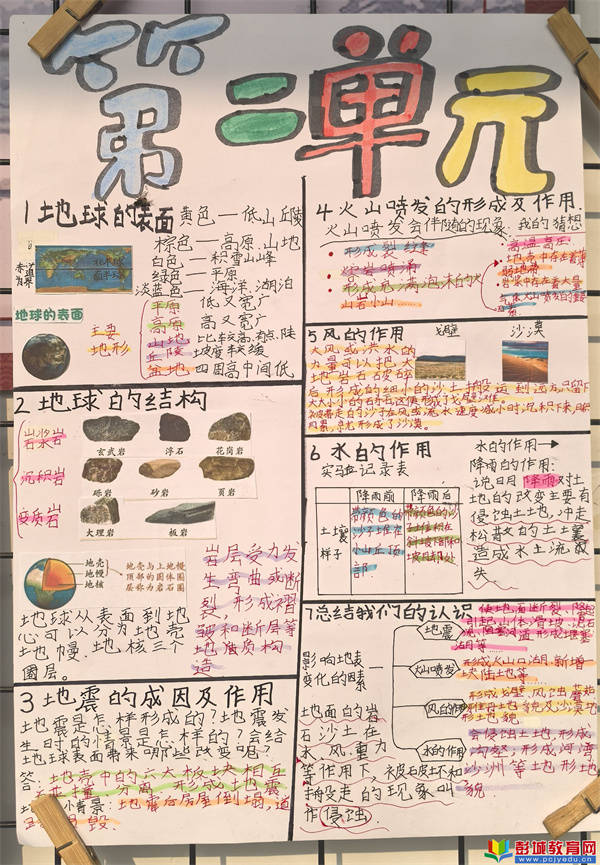 第二单元
1 地球的表面
黄色一低山丘陵
棕色一高原.山地
白色一积雪山峰
绿色一平原
淡蓝色一海洋.湖泊
地球的表面
主要
地形
平原 低又宽广
高原 高又宽广
山地
丘陵 坡度较缓
盆地 四周高中间低.
2 地球的结构
岩浆岩
玄武岩 浮石 花岗岩
沉积岩
砾岩 砂岩 页岩
变质岩
大理岩 板岩
地壳
地幔
地核
地壳与上地幔
顶部的固体岩
层称为岩石圈
地球从表面到地
心可以分为地壳
地幔.地核三个
圈层.
岩层受力发
生弯曲或断
裂,形成褶
皱和断层等
地质构
造
3 地震的成因及作用
地震是怎样形成的?地震发
生时的情景是怎样的?会给
地球表面带来哪些改变呢?
答:地壳中的六大板块相互
情景:地震后房屋倒塌,道
毁
4 火山喷发的形成及作用.
火山喷发会伴随的现象 我的猜想
形成裂纹
熔岩喷涌
山岩小山
高温高压
5 风的作用
戈壁 沙漠
大风或洪水的
力量可以把
地岩石破碎
后形成的细小的沙土搬运到远方,只留下
6 水的作用
实验记录表
降雨前 降雨后
土壤
样子
颜色的
沙子堆在
小山丘顶
部
水的作用→
降雨的作用:
说明降雨对土
地的改变主要有
侵蚀土地,冲走
松散的土壤
造成水土流
失
7 总结我们的认识
影响地表
变化的因素
地震
使地面断裂、隆起
引起岩体滑坡
湖月等
火山喷发
形成火山口湖.新增
陆地等
风的作用
水的作用
会侵蚀土地,形成
沟壑;形成河湾
沙洲等地形地
貌
地面的岩
石沙土在
水.风.重力
等作用下,被
搬走的现象叫
作侵蚀.
彭城教育网
www.pcjyedu.cn